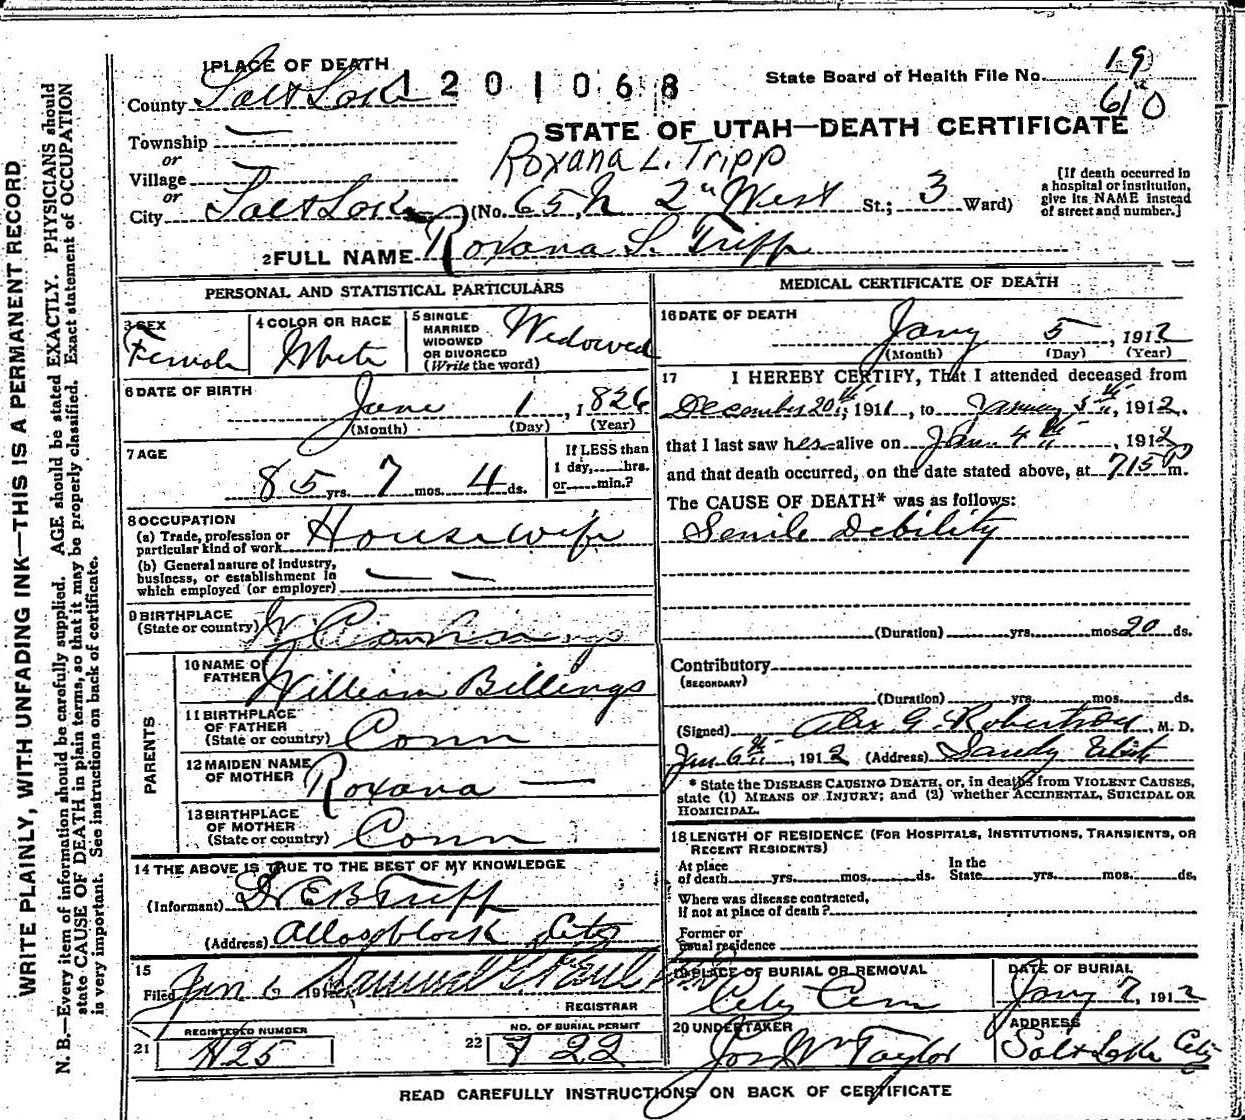 WRITE PLAINLY, WITH UNFADING INK—THIS IS A PERMANENT RECORD
N. B.—Every item of information should be carefully supplied. AGE should be stated EXACTLY. PHYSICIANS should
state CAUSE OF DEATH in plain terms, so that it may be properly classified. Exact statement of OCCUPATION
is very important. See instructions on back of certificate.
1 PLACE OF DEATH
1201068
State Board of Health File No. 19
610
County Salt Lake
STATE OF UTAH—DEATH CERTIFICATE
Township —
or
Roxana L. Tripp
Village
or
City Salt Lake (No. 65 N 2nd West St.; 3 Ward)
[If death occurred in
a hospital or institution,
give its NAME instead
of street and number.]
2 FULL NAME Roxana S. Tripp
PERSONAL AND STATISTICAL PARTICULARS
3 SEX
Female
4 COLOR OR RACE
White
5 SINGLE
MARRIED
WIDOWED
OR DIVORCED
(Write the word)
Widowed
6 DATE OF BIRTH
June 1, 1826
(Month) (Day) (Year)
7 AGE
85 yrs. 7 mos. 4 ds.
If LESS than
1 day, hrs.
or min.?
8 OCCUPATION
(a) Trade, profession or
particular kind of work Housewife
(b) General nature of industry,
business, or establishment in
which employed (or employer) — —
9 BIRTHPLACE
(State or country)
PARENTS
10 NAME OF
FATHER William Billings
11 BIRTHPLACE
OF FATHER
(State or country) Conn
12 MAIDEN NAME
OF MOTHER Roxana —
13 BIRTHPLACE
OF MOTHER
(State or country) Conn
14 THE ABOVE IS TRUE TO THE BEST OF MY KNOWLEDGE
(Informant) Dr E B Tripp
(Address) block City
15
Filed Jan 6 191 Samuel G. Paul
REGISTRAR
REGISTERED NUMBER
21 H25
NO. OF BURIAL PERMIT
22 722
MEDICAL CERTIFICATE OF DEATH
16 DATE OF DEATH
Jany 5, 1912
(Month) (Day) (Year)
17 I HEREBY CERTIFY, That I attended deceased from
December 20th, 1911, to January 5th, 1912.
that I last saw her alive on Jan 4th, 1912
and that death occurred, on the date stated above, at 715 P m.
The CAUSE OF DEATH* was as follows:
Senile Debility
(Duration) yrs. mos 20 ds.
Contributory
(SECONDARY)
(Duration) yrs. mos. ds.
(Signed) Alex G. Robertson, M. D.
Jan 6th, 1912 (Address) Sandy Utah
* State the DISEASE CAUSING DEATH, or, in deaths from VIOLENT CAUSES,
state (1) MEANS OF INJURY; and (2) whether ACCIDENTAL, SUICIDAL OR
HOMICIDAL.
18 LENGTH OF RESIDENCE (FOR HOSPITALS, INSTITUTIONS, TRANSIENTS, OR
RECENT RESIDENTS)
At place
of death yrs. mos. ds.
In the
State yrs. mos. ds.
Where was disease contracted,
if not at place of death?
Former or
usual residence
19 PLACE OF BURIAL OR REMOVAL
City Cem
DATE OF BURIAL
Jany 7, 1912
20 UNDERTAKER
Jos Wm Taylor
ADDRESS
Salt Lake City
READ CAREFULLY INSTRUCTIONS ON BACK OF CERTIFICATE